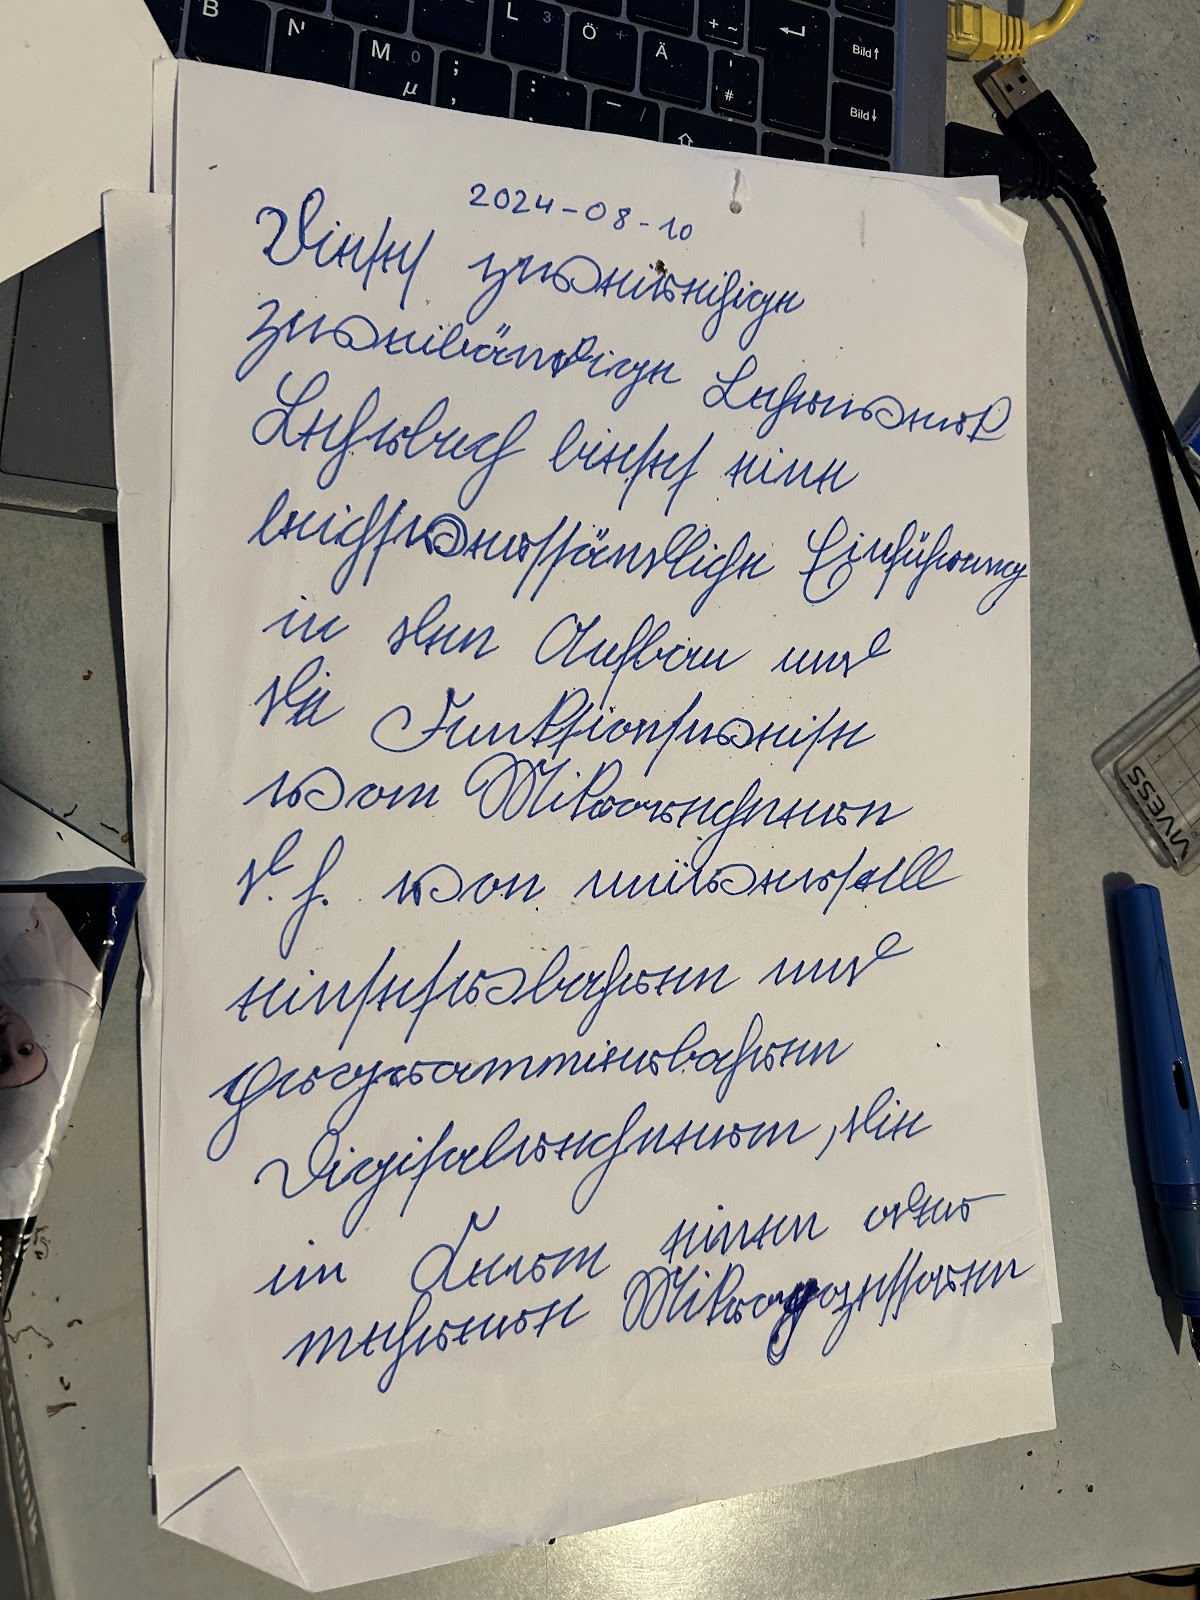 B N M L Ö Ä Bild↑
Bild↓
2024-08-10
Dieses zweireihige
zweibändige Lehrwerk
Lehrbuch bietet eine
leichtverständliche Einführung
in den Aufbau und
die Funktionsweise
vom Mikrorechnern
d. h. von universell
einsetzbahren und
programmierbahren
Digitalrechnern, die
im Kern einen oder
mehrere Mikroprozessoren